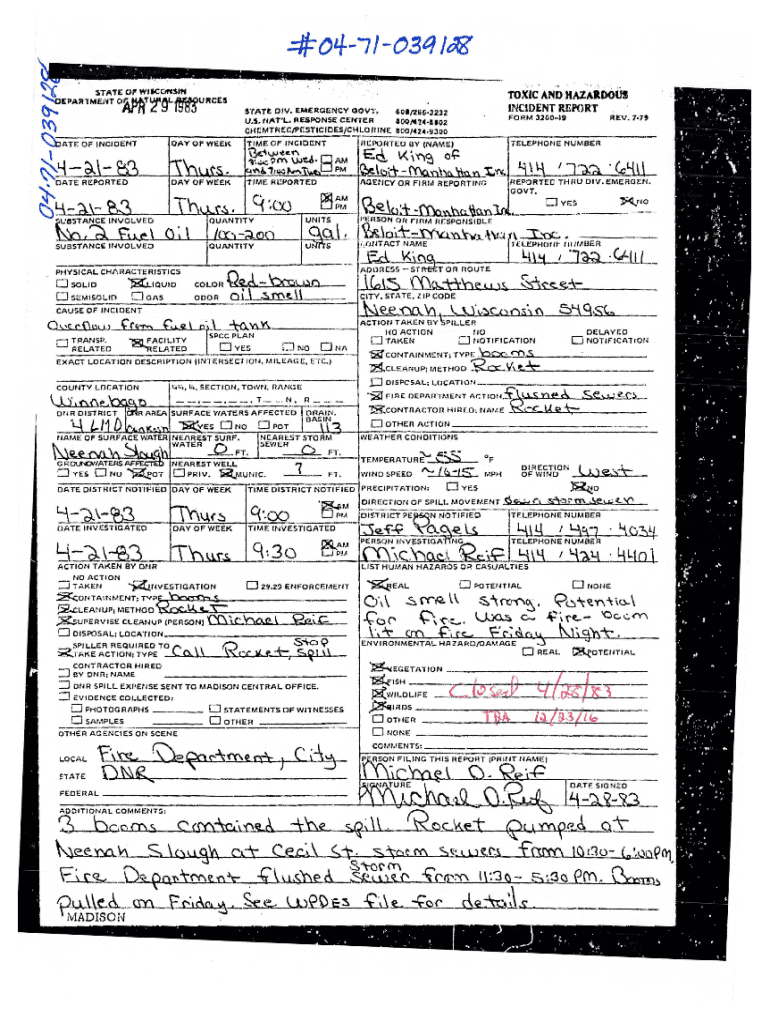 #04-71-039128
04-71-039128
STATE OF WISCONSIN
DEPARTMENT OF NATURAL RESOURCES
APR 29 1983
STATE DIV. EMERGENCY GOVT. 608/266-3232
U.S. NAT'L. RESPONSE CENTER 800/424-8802
CHEMTREC/PESTICIDES/CHLORINE 800/424-9300
TOXIC AND HAZARDOUS
INCIDENT REPORT
FORM 3200-19 REV. 7-79
DATE OF INCIDENT DAY OF WEEK TIME OF INCIDENT REPORTED BY (NAME) TELEPHONE NUMBER
4-21-83 Thurs. Between PM Wed. and AM AM PM Ed King of Beloit-Manhattan Inc. 414 / 722 - 6411
DATE REPORTED DAY OF WEEK TIME REPORTED AGENCY OR FIRM REPORTING REPORTED THRU DIV. EMERGEN. GOVT.
4-21-83 Thurs. 9:00 AM PM Beloit-Manhattan In. YES NO
SUBSTANCE INVOLVED QUANTITY UNITS PERSON OR FIRM RESPONSIBLE
No. 2 Fuel Oil 100-200 gal. Beloit-Manhattan Inc.
SUBSTANCE INVOLVED QUANTITY UNITS CONTACT NAME TELEPHONE NUMBER
Ed King 414 / 722 - 6411
PHYSICAL CHARACTERISTICS ADDRESS - STREET OR ROUTE
SOLID LIQUID COLOR Red-brown 1615 Matthews Street
SEMISOLID GAS ODOR oil smell CITY, STATE, ZIP CODE
CAUSE OF INCIDENT Neenah, Wisconsin 54956
Overflow from fuel oil tank ACTION TAKEN BY SPILLER
TRANSP. RELATED FACILITY RELATED SPCC PLAN YES NO NA NO ACTION TAKEN NO NOTIFICATION DELAYED NOTIFICATION
EXACT LOCATION DESCRIPTION (INTERSECTION, MILEAGE, ETC.) CONTAINMENT; TYPE booms
CLEANUP; METHOD Rocket
COUNTY LOCATION ¼¼, ¼, SECTION, TOWN, RANGE DISPOSAL; LOCATION
Winnebago T N, R FIRE DEPARTMENT ACTION flushed sewers
DNR DISTRICT DNR AREA SURFACE WATERS AFFECTED DRAIN. BASIN CONTRACTOR HIRED; NAME Rocket
4 LMD YES NO POT 113 OTHER ACTION
NAME OF SURFACE WATER NEAREST SURF. WATER NEAREST STORM SEWER WEATHER CONDITIONS
Neenah Slough 0 FT. 0 FT. TEMPERATURE ~ 55 °F
GROUNDWATERS AFFECTED NEAREST WELL WIND SPEED ~ 10-15 MPH DIRECTION OF WIND West
YES NO POT PRIV. MUNIC. ? FT. PRECIPITATION: YES NO
DATE DISTRICT NOTIFIED DAY OF WEEK TIME DISTRICT NOTIFIED DIRECTION OF SPILL MOVEMENT down storm sewer
4-21-83 Thurs 9:00 AM PM DISTRICT PERSON NOTIFIED TELEPHONE NUMBER
Jeff Pagels 414 / 497 - 4034
DATE INVESTIGATED DAY OF WEEK TIME INVESTIGATED PERSON INVESTIGATING TELEPHONE NUMBER
4-21-83 Thurs 9:30 AM PM Michael Reif 414 / 424 - 4401
ACTION TAKEN BY DNR LIST HUMAN HAZARDS OR CASUALTIES
NO ACTION TAKEN INVESTIGATION 29.29 ENFORCEMENT REAL POTENTIAL NONE
CONTAINMENT; TYPE booms Oil smell strong. Potential
CLEANUP; METHOD Rocket for fire. Was a fire - boom
SUPERVISE CLEANUP (PERSON) Michael Reif lit on fire Friday Night.
DISPOSAL; LOCATION
SPILLER REQUIRED TO TAKE ACTION; TYPE Call Rocket, Stop spill ENVIRONMENTAL HAZARD/DAMAGE REAL POTENTIAL
CONTRACTOR HIRED BY DNR; NAME VEGETATION
DNR SPILL EXPENSE SENT TO MADISON CENTRAL OFFICE. FISH
EVIDENCE COLLECTED: WILDLIFE Closed 4/28/83
PHOTOGRAPHS STATEMENTS OF WITNESSES BIRDS
SAMPLES OTHER OTHER TBA 12/23/16
OTHER AGENCIES ON SCENE NONE
COMMENTS:
LOCAL Fire Department, City PERSON FILING THIS REPORT (PRINT NAME)
STATE DNR Michael D. Reif
FEDERAL SIGNATURE DATE SIGNED
Michael D. Reif 4-28-83
ADDITIONAL COMMENTS:
3 booms contained the spill. Rocket pumped at
Neenah Slough at Cecil St. storm sewers from 10:30-6:00PM
Fire Department flushed Storm Sewer from 11:30-5:30 PM. Booms
pulled on Friday. See WPDES file for details.
MADISON